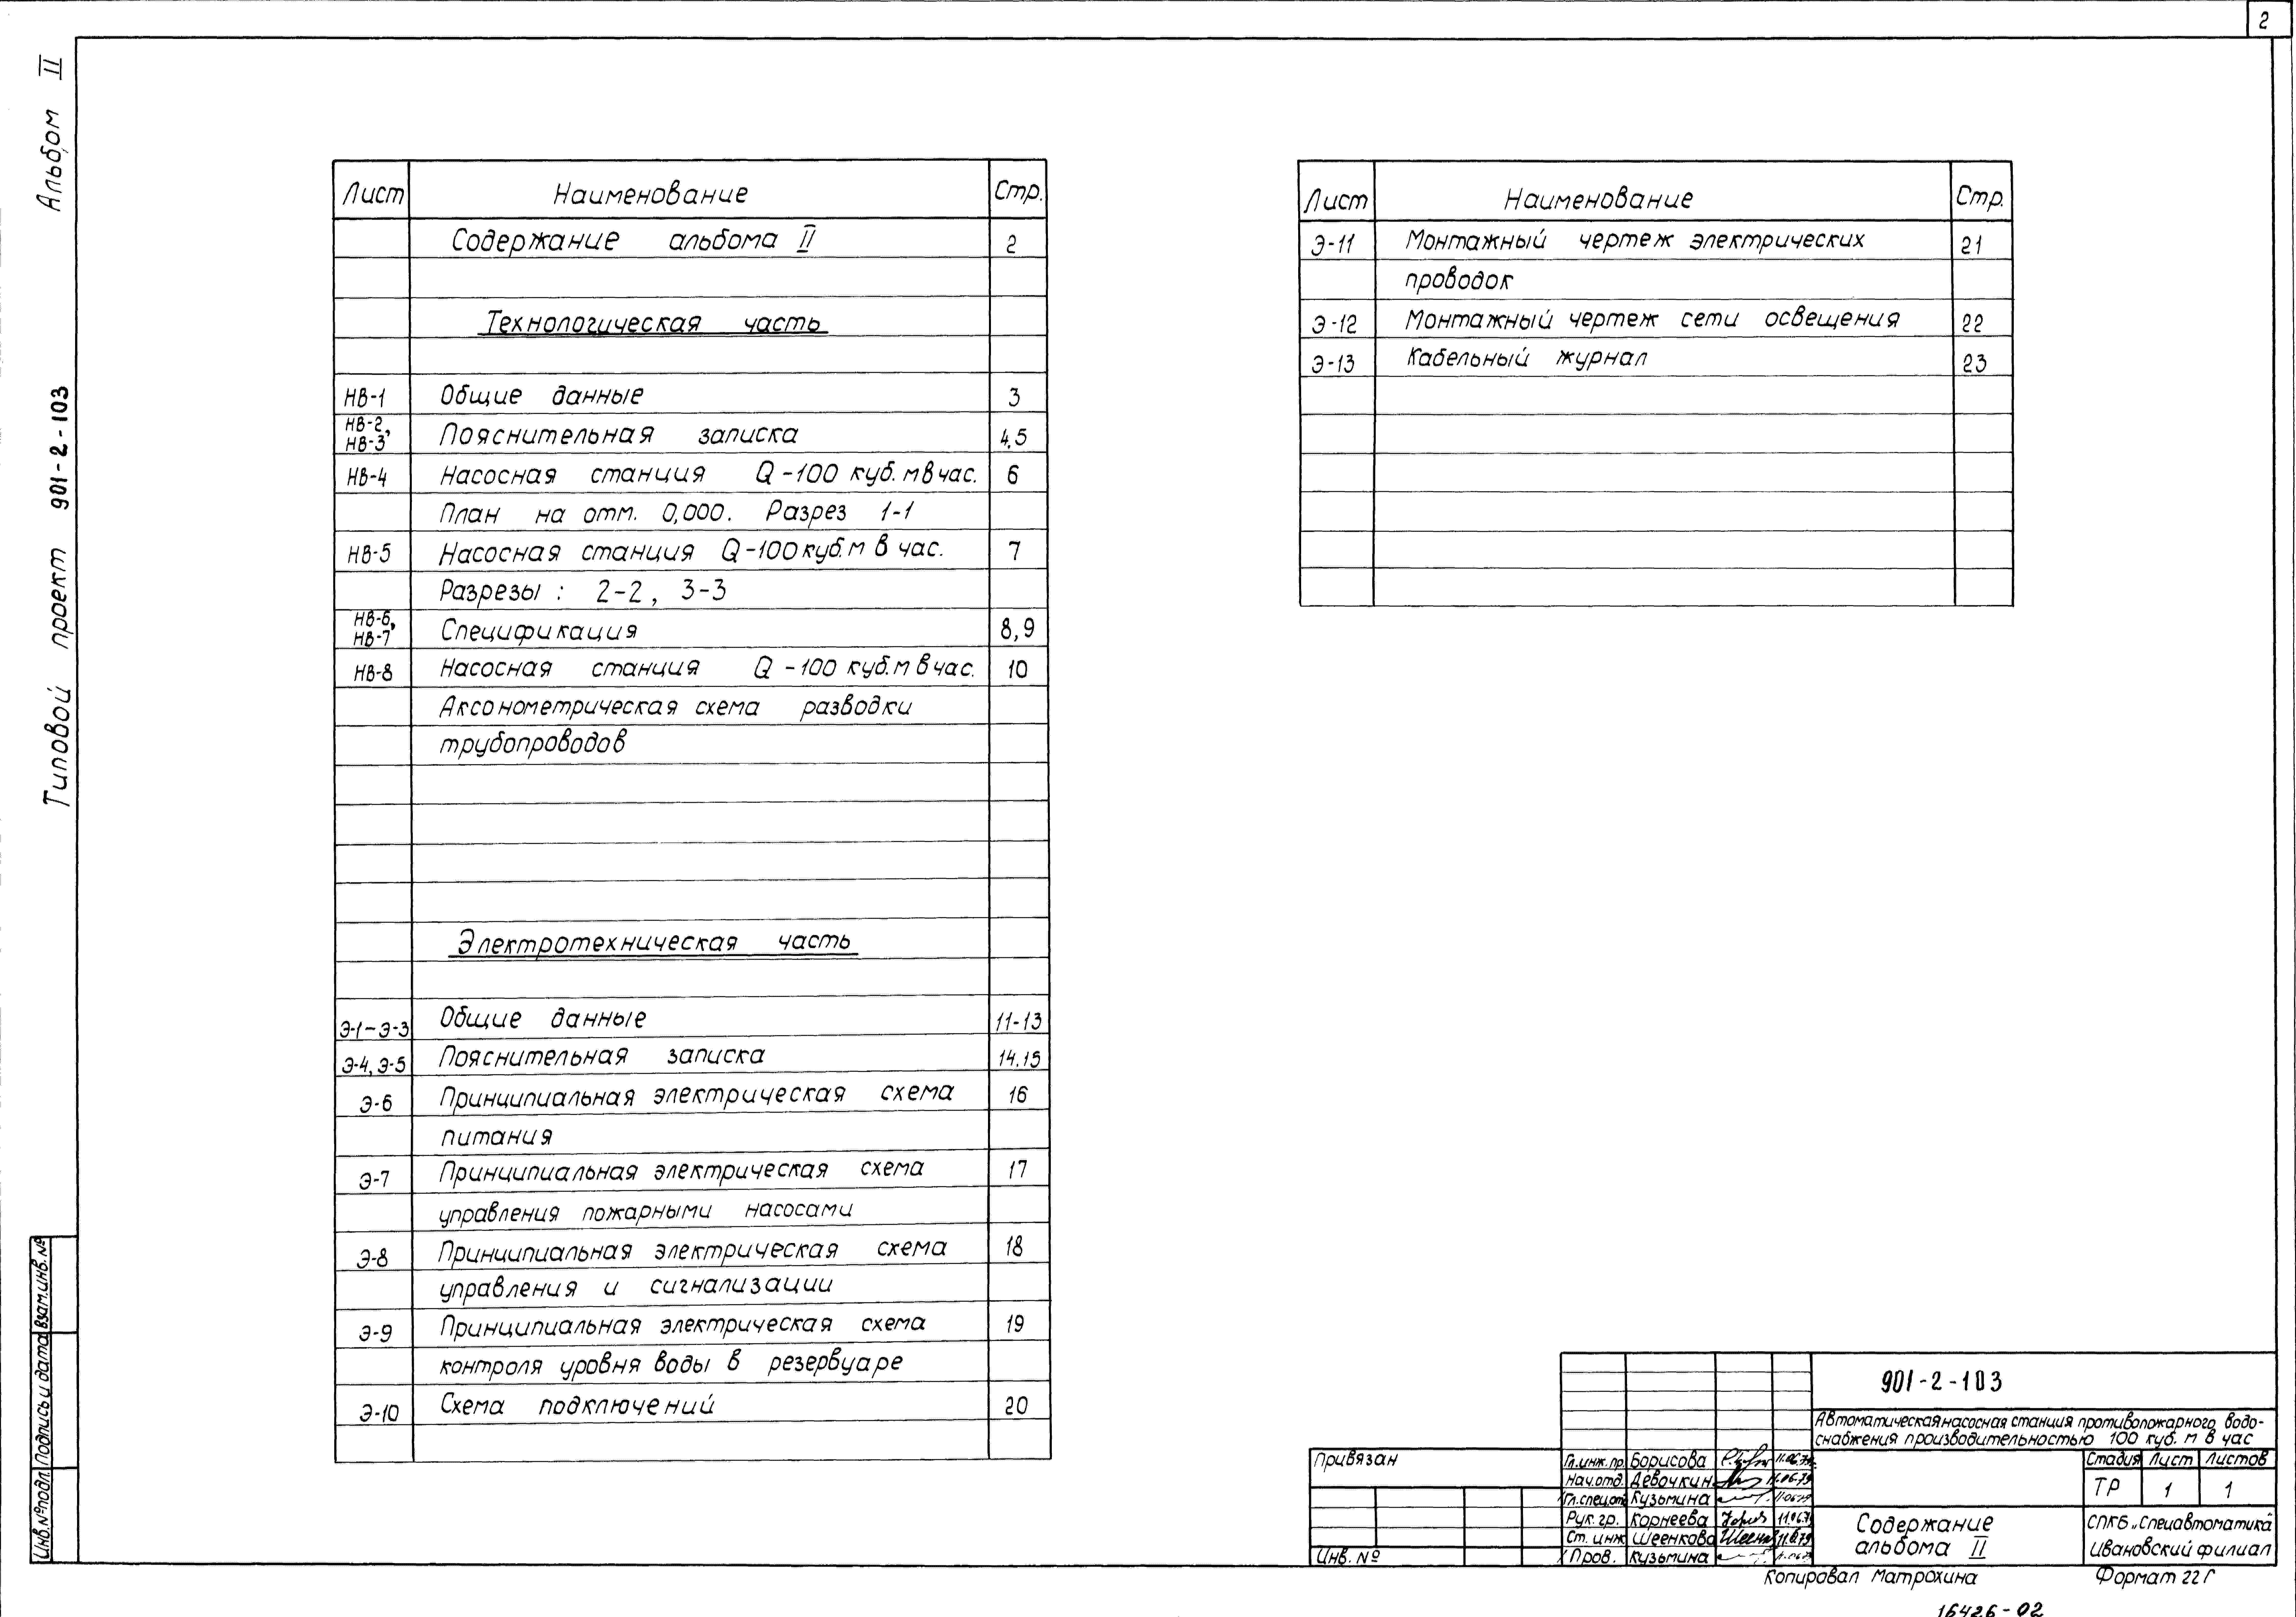 2
Альбом II
Типовой проект 901-2-103
Лист Наименование Стр.
Содержание альбома II 2
Технологическая часть
НВ-1 Общие данные 3
НВ-2, НВ-3 Пояснительная записка 4,5
НВ-4 Насосная станция Q-100 куб. м в час. 6
План на отм. 0,000. Разрез 1-1
НВ-5 Насосная станция Q-100 куб. м в час. 7
Разрезы: 2-2, 3-3
НВ-6, НВ-7 Спецификация 8,9
НВ-8 Насосная станция Q-100 куб. м в час. 10
Аксонометрическая схема разводки
трубопроводов
Электротехническая часть
Э-1-Э-3 Общие данные 11-13
Э-4, Э-5 Пояснительная записка 14.15
Э-6 Принципиальная электрическая схема 16
питания
Э-7 Принципиальная электрическая схема 17
управления пожарными насосами
Э-8 Принципиальная электрическая схема 18
управления и сигнализации
Э-9 Принципиальная электрическая схема 19
контроля уровня воды в резервуаре
Э-10 Схема подключений 20
Лист Наименование Стр.
Э-11 Монтажный чертеж электрических 21
проводок
Э-12 Монтажный чертеж сети освещения 22
Э-13 Кабельный журнал 23
Инв.№подл. Подпись и дата Взам.инв.№
901-2-103
Автоматическая насосная станция противопожарного водо-
снабжения производительностью 100 куб. м в час
Привязан
Инв. №
Гл.инж.пр. Борисова 11.06.79
Нач.отд. Девочкин 11.06.79
Гл.спец.отд Кузьмина 11.06.79
Рук. гр. Корнеева 11.06.79
Ст. инж Шеенкова 11.6.79
Пров. Кузьмина 11.06.79
Стадия Лист Листов
ТР 1 1
Содержание
альбома II
СПКБ „Спецавтоматика"
Ивановский филиал
Копировал Матрохина Формат 22Г
16426-02